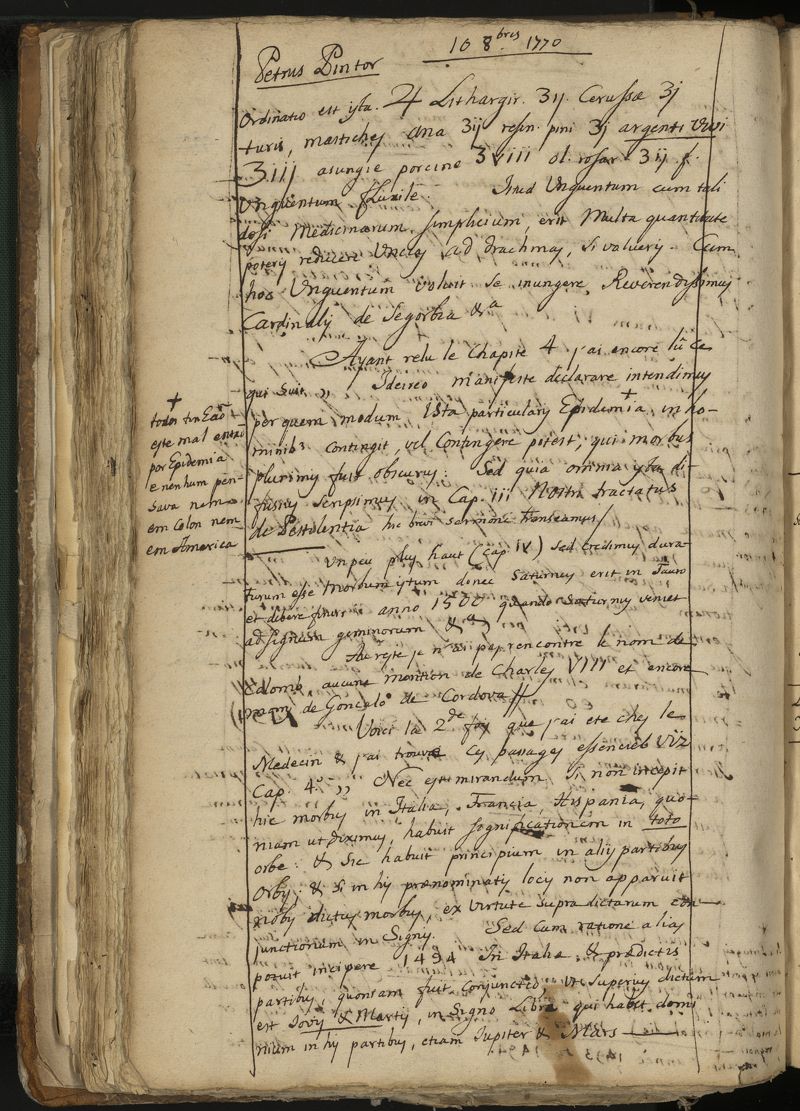 10 8bres 1770
Petrus Pintor
Ordinatio est ista. ♃ Lithargir. ʒij. Cerussæ ʒj
turis, mastiches ana ʒij resin. pini ʒj argenti vivi
ʒiij axungie porcine ʒviii ol. rosar ʒij f.
Unguentum fluxile. Istud Unguentum cum tali
dosi Medicinarum simplicium, erit Multa quantitate
poteris reducere Uncias ad drachmas, si volueris. Cum
hoc Unguentum voluit se inungere, Reverendissimus
Cardinalis de Segorbia &a
Ayant relu le Chapite 4 j'ai encore lû ce
qui suit „ Ideirco manifeste declarare intendimus
per quem modum Ista particularis Epidemia + in ho-
minibs contingit, vel Contingere potest, qui morbus
plurimis fuit obscurus: Sed quia omnia ista di-
fusius scripsimus in Cap. iii Nostri tractatus
de Pestilentia hic brevi sermone transeamus/
+
todos tin Eaõ
este mal entaõ
por Epidemia
e nenhum pen-
sava nem
em Colon nem
em America
Un peu plus haut (Cap. IV) Sed Credimus dura-
turum esse morbum istum donec Saturnus erit in Tauro
et debere finiri anno 1500 quando Saturnus veniet
ad signum geminorum &a
Au reste je n'ai pas rencontre le nom de
Colomb, aucune mention de Charles VIII et encore
de Gonçalo de Cordova //
Voici la 2de fois que j'ai ete ches le
Medecin & j'ai trouve Ces passages essenciels Viz
Cap. 4. „ Nec est mirandum Si non incepit
hic morbus in Italia, Francia, Hispania, quo-
niam ut diximus, habuit significationem in toto
orbe: & sic habuit principium in aliis partibus
Orbis; & si in his prænominatis locis non apparuit
nobis dictus morbus, ex virtute supra dictarum con-
junctionum in Signis. Sed Cum ratione alias
potuit incipere 1494 In Italia & prædictis
partibus, quoniam fuit Conjunctio, ut Superius dictum
est Jovis & Martis, in Signo Libra qui habet domi
nium in his partibus, etiam Jupiter & Mars